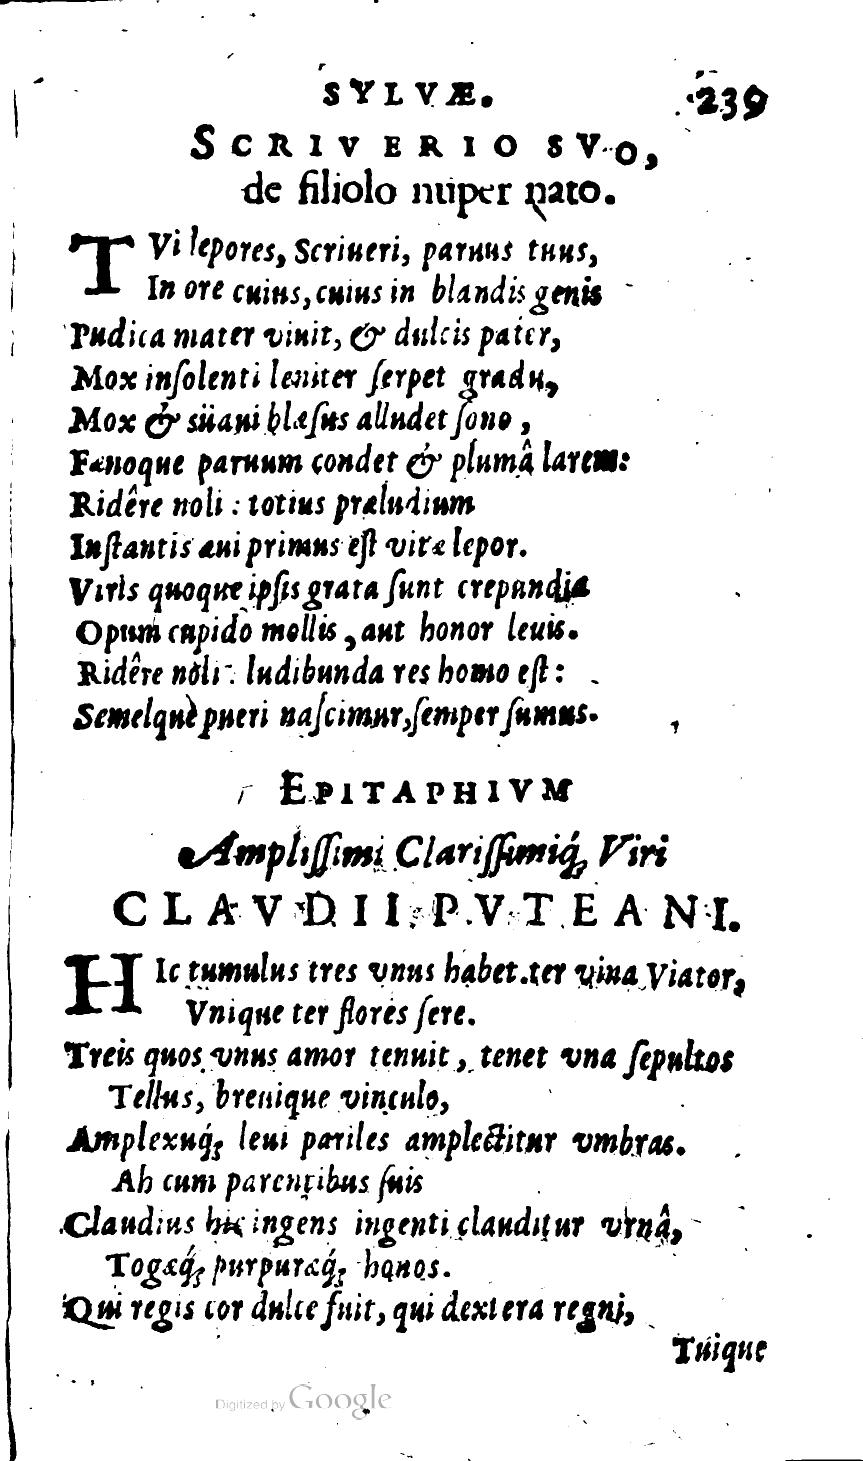 SYLVÆ. 239
SCRIVERIO SVO,
de filiolo nuper nato.
TVi lepores, Scriueri, paruus tuus,
In ore cuius, cuius in blandis genis
Pudica mater viuit, & dulcis pater,
Mox inſolenti leuiter ſerpet gradu,
Mox & süaui blæſus alludet ſono,
Fænoque paruum condet & plumâ larem:
Ridêre noli: totius præludium
Inſtantis æui primus eſt vitæ lepor.
Viris quoque ipſis grata ſunt crepundia
Opum cupido mollis, aut honor leuis.
Ridêre noli: ludibunda res homo eſt:
Semelque pueri naſcimur, ſemper ſumus.
EPITAPHIVM
Ampliſſimi Clariſſimiq́; Viri
CLAVDII PVTEANI.
HIc tumulus tres vnus habet. ter vina Viator,
Vnique ter flores ſere.
Treis quos vnus amor tenuit, tenet vna ſepultos
Tellus, breuique vinculo,
Amplexuq́; leui pariles amplectitur vmbras.
Ah cum parentibus ſuis
Claudius hic ingens ingenti clauditur vrnâ,
Togæq́; purpuræq́; honos.
Qui regis cor dulce fuit, qui dextera regni,
Tuique
Digitized by Google